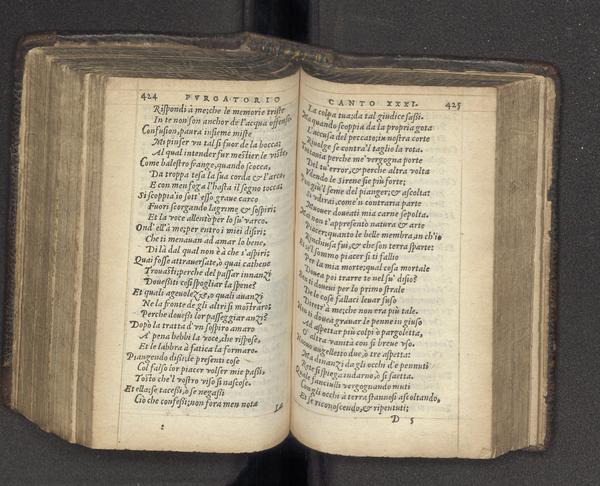 424 PVRGATORIO
Rispondi à me; che le memorie triste
In te non son anchor de l'acqua offense.
Confusion, paura insieme miste
Mi pinser vn tal sì fuor de la bocca;
Al qual intender fur mestier le viste,
Come balestro frange, quando scocca,
Da troppa tesa la sua corda & l'arco,
E con men foga l'hasta il segno tocca;
Si scoppia'io sott'esso graue carco
Fuori sgorgando lagrime & sospiri;
Et la voce allentò per lo su' varco.
Ond' ell'à me; per entro i miei disiri;
Che ti menauan ad amar lo bene,
Di là dal qual non è à che s'aspiri;
Quai fosse attrauersate, o quai cathene
Trouasti; perche del passar innanzi
Douessiti così spogliar la spene?
Et quali ageuolezze, o quali auanzi
Ne la fronte de gli altri si mostraro;
Perche douessi lor passeggiar anzi?
Dopò la tratta d'vn sospiro amaro
A' pena hebbi la voce, che rispose,
Et le labbra à fatica la formaro.
Piangendo dissi; le presenti cose
Col falso lor piacer volser mie passi,
Tosto che'l vostro viso si nascose.
Et ella; se tacessi, ò se negassi
Ciò che confessi; non fora men nota
La
CANTO XXXI. 425
La colpa tua; da tal giudice sassi.
Ma quando scoppia da la propria gota
L'accusa del peccato; in nostra corte
Riuolge se contra'l taglio la rota.
Tuttauia perche me' vergogna porte
Del tu' error, & perche altra volta
Vdendo le Sirene sie più forte;
Pon giu'l seme del pianger; & ascolta:
Si vdirai, come in contraria parte
Muouer doueati mia carne sepolta.
Mai non t'appresentò natura & arte
Piacer; quanto le belle membra, in ch'io
Rinchiusa fui, & che son terra sparte:
Et se'l sommo piacer si ti fallio
Per la mia morte; qual cosa mortale
Douea poi trarre te nel su' disio?
Ben ti doueui per lo primo strale
De le cose fallaci leuar suso
Diretr' à me; che non era più tale.
Non ti douea grauar le penne in giuso
Ad aspettar più colpi ò pargoletta,
O' altra vanità con sì breue vso.
Nuouo augelletto due, ò tre aspetta:
Ma dinanzi da gli occhi d'e pennuti
Rete si spiega indarno, ò si saetta.
Quale fanciulli vergognando muti
Con gli occhi à terra stannosi ascoltando,
Et se riconoscendo, & ripentuti;
D 5